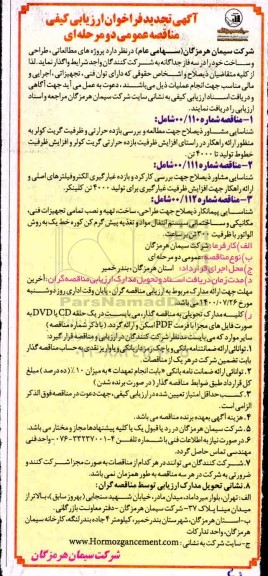 آگهی تجدید فراخوان ارزیابی کیفی
مناقصه عمومی دو مرحله ای
شرکت سیمان هرمزگان (سهامی عام) در نظر دارد پروژه های مطالعاتی، طراحی
و ساخت خود را در سه فاز جداگانه به شرکت کنندگان واجد شرایط واگذار نماید. لذا
از کلیه متقاضیان ذیصلاح و اشخاص حقوقی که دارای توان فنی، تجهیزاتی، اجرایی و
مالی متناسب جهت انجام عملیات ذیل می باشند، دعوت به عمل می آید جهت آگاهی
و دریافت اسناد ارزیابی کیفی به نشانی سایت شرکت سیمان هرمزگان مراجعه و اسناد
ارزیابی را دریافت نمایند.
۱- مناقصه شماره ۰۰/۱۱۰ شامل:
شناسایی مشاور ذیصلاح جهت مطالعه و بررسی بازده حرارتی و ظرفیت گریت کولر به
منظور ارائه راهکار در راستای افزایش ظرفیت بازده حرارتی گریت کولر و افزایش ظرفیت
خطوط تولید تا ۴۰۰۰ تن.
۲- مناقصه شماره ۰۰/۱۱۱ شامل:
شناسایی مشاور ذیصلاح جهت بررسی کارکرد و بازده غبارگیری الکتروفیلترهای اصلی و
ارائه راهکار جهت افزایش ظرفیت غبارگیری برای تولید ۴۰۰۰ تن کلینکر.
۳- مناقصه شماره ۰۰/۱۱۲ شامل:
شناسایی پیمانکار ذیصلاح جهت طراحی، ساخت، تهیه و نصب تمامی تجهیزات فنی،
مکانیکی و ساختمانی سیستم انتقال مواد و تغذیه پیش گرم کن کوره خط یک به روش
الواتور با ظرفیت ۳۰۰ تن بر ساعت.
الف) کارفرما: شرکت سیمان هرمزگان
ب) نوع مناقصه: عمومی دو مرحله ای
ج) محل اجرای قرارداد: استان هرمزگان - بندر خمیر
د) مدت زمان دریافت اسناد و تحویل مدارک ارزیابی مناقصه گران: آخرین
مهلت جهت ارائه مدارک مربوط به ارزیابی مناقصه گران، پایان وقت اداری روز دوشنبه
مورخ ۱۴۰۰/۰۷/۲۶ می باشد.
ر) کلیه مدارک تحویلی به مناقصه گذار، می بایست در یک حلقه CD یا DVD به
صورت فایل های مجزا با فرمت PDF اسکن و ارائه گردد. (با ذکر شماره مناقصه)
سایر موارد که می بایست مدنظر شرکت کنندگان در ارزیابی و مناقصه قرار گیرد:
۱. توانائی ارائه ضمانتنامه بانکی و یا چک رمزدار بانکی و یا واریز نقدی به حساب مناقصه گذار
بابت تضمین شرکت در هر یک از مناقصات
۲. توانائی ارائه ضمانت نامه بانکی «بابت انجام تعهدات» به میزان ۱۰٪ (ده درصد) مبلغ
کل قرارداد طبق ضوابط مناقصه گذار (در صورت برنده شدن)
۳. کسب حداقل امتیاز تعیین شده در ارزیابی کیفی، جهت دعوت در مناقصه فوق الذکر
الزامی است.
۴. هزینه آگهی بعهده برنده مناقصه می باشد.
۵. شرکت سیمان هرمزگان در رد یا قبول یک یا کلیه پیشنهادها مجاز و مختار می باشد.
۶. در صورت نیاز به اطلاعات فنی با شماره تلفن ۴-۳۳۲۳۷۰۰۱-۰۷۶ - واحد فنی
مهندسی تماس حاصل گردد.
۷. شرکت کنندگان می توانند در هر کدام از مناقصات به صورت مجزا شرکت کنند و
ضرورتی به شرکت در هر سه مناقصه به طور همزمان نمی باشد.
۸. نشانی تحویل مدارک ارزیابی توسط مناقصه گران:
الف: تهران، بلوار میرداماد، میدان مادر، خیابان شهید سنجابی (بهروز سابق)، بالاتر از
میدان مینا، پلاک ۳۷ - شرکت سیمان هرمزگان - دفتر معاونت بازرگانی.
ب- استان هرمزگان، شهرستان بندرخمیر، کیلومتر ۴ جاده بندر لنگه، کارخانه سیمان
هرمزگان، واحد تدارکات
ج- سایت شرکت به نشانی: www.Hormozgancement.com
شرکت سیمان هرمزگان